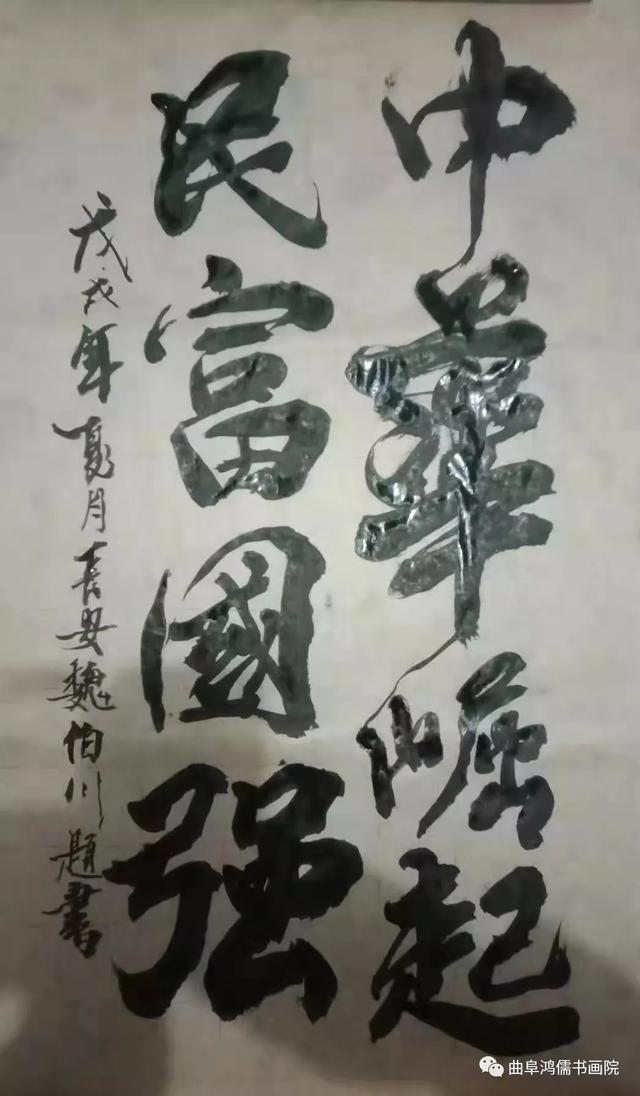 中華崛起
民富國强
戊戌年夏月长安魏伯川题書
曲阜鸿儒书画院